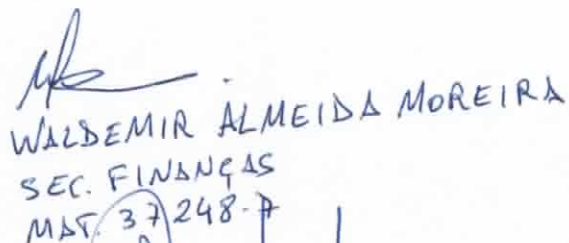 WALDEMIR ALMEIDA MOREIRA
SEC. FINANÇAS
MAT. 37248-7